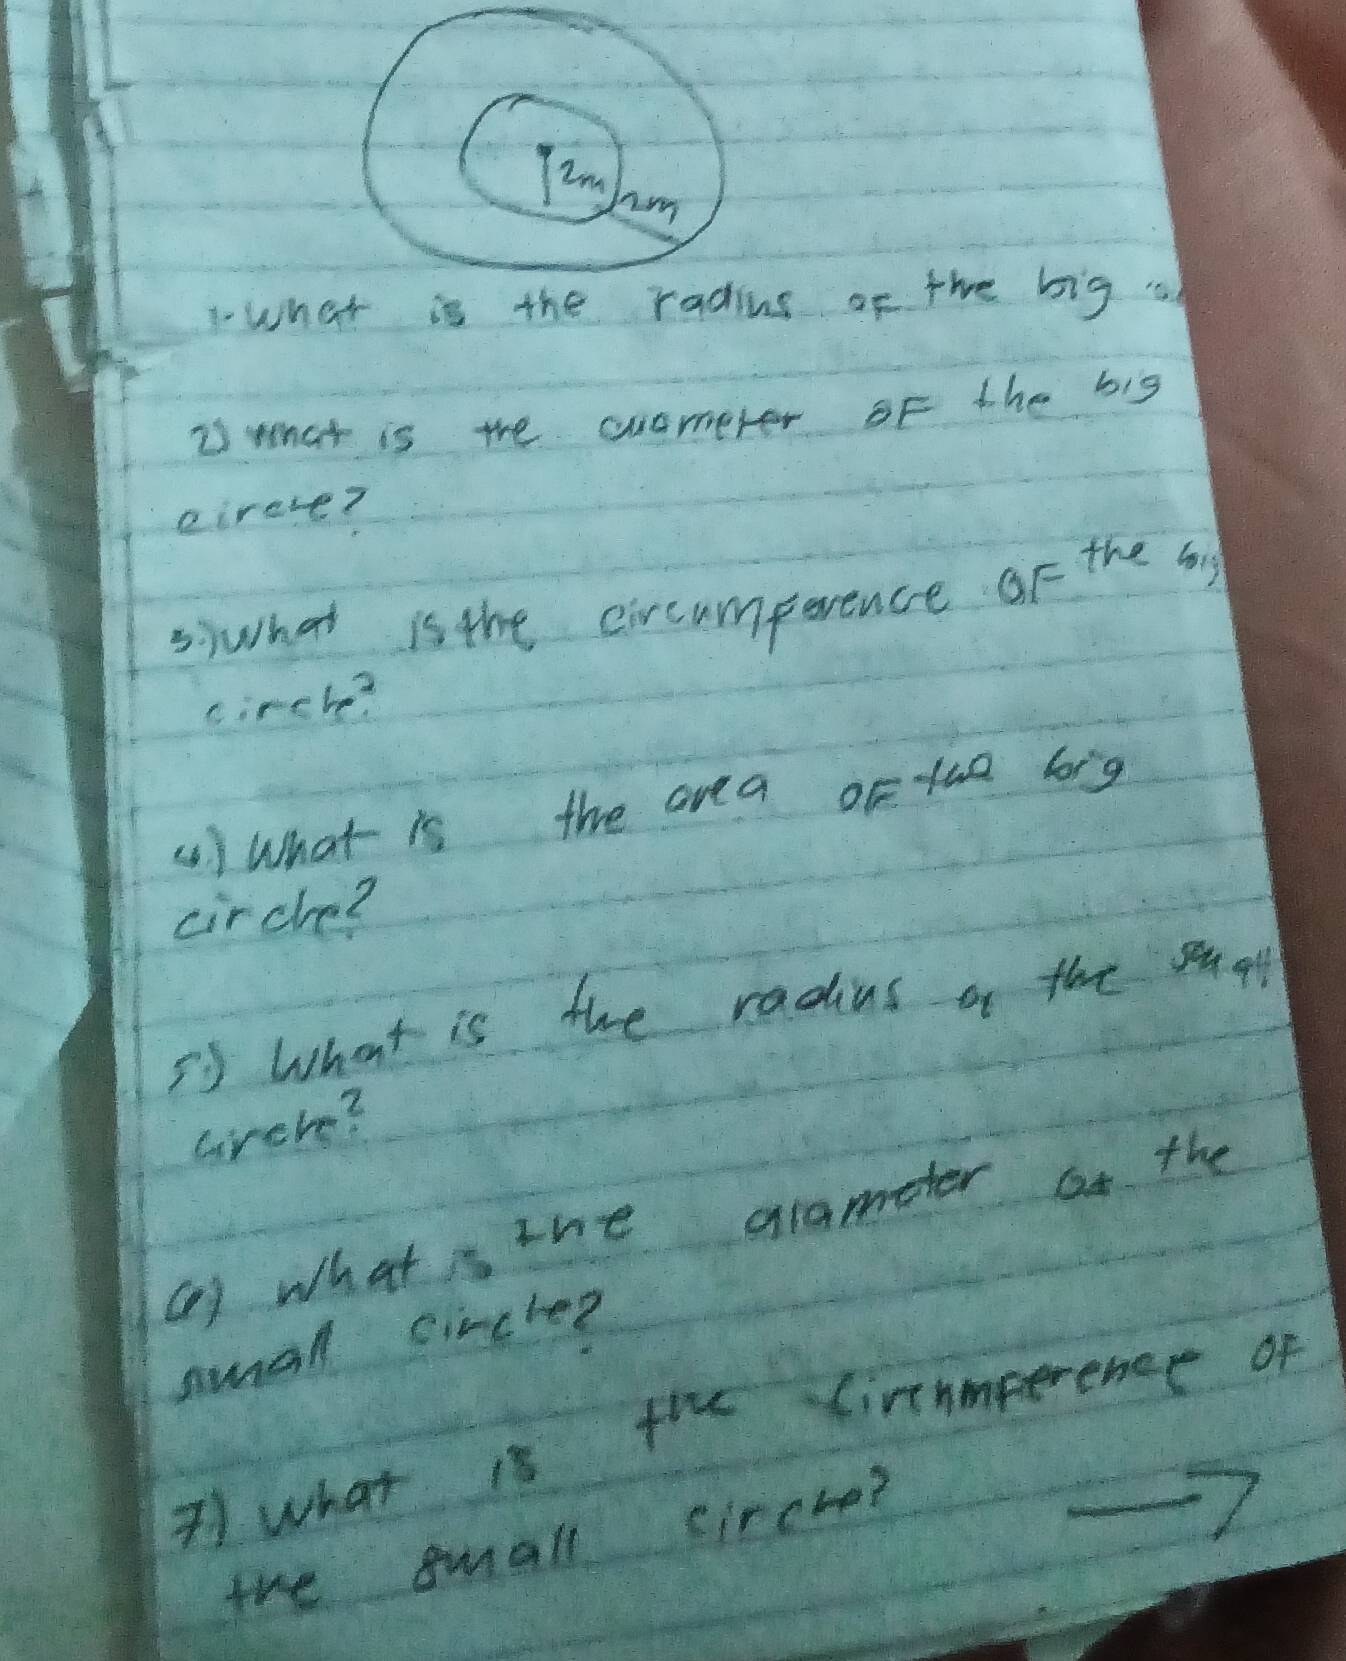 2m
2m
1. What is the radius of the big
2) What is the diameter of the big
circle?
3.) What is the circumference of the big
circle?
4.) What is the area of the big
circle?
5.) What is the radius of the small
circle?
6) What is the diameter of the
small circle?
7) What is the circumference of
the small circle?